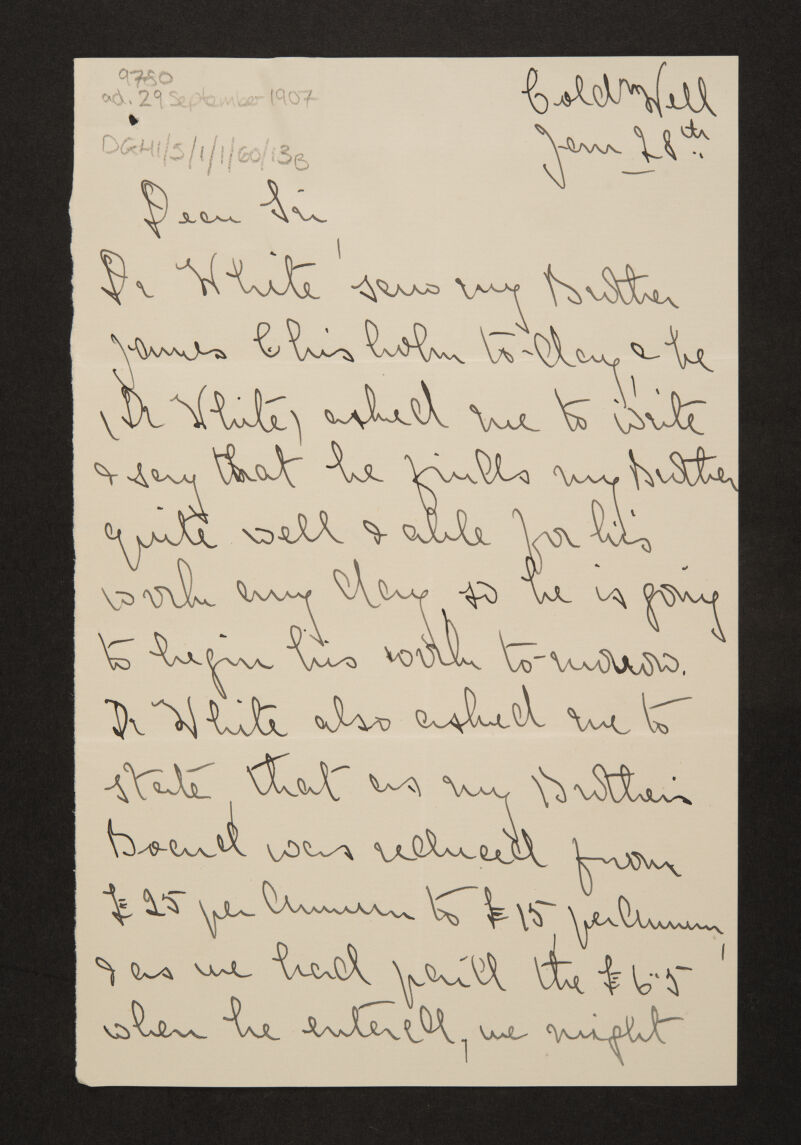 9780
ad. 29 September 1907
DGH1/5/1/1/60/13B
Cold Well
Jan 28th
Dear Sir,
Dr White saw my Brother
James Chisholm to-day, & he
(Dr White) asked me to write
& say that he finds my Brother
quite well & able for his
work any day, so he is going
to begin his work to-morrow.
Dr White also asked me to
state, that as my Brother's
Board was reduced from
£25 per Annum to £15 per Annum,
& as we had paid the £6"5
when he entered, we might